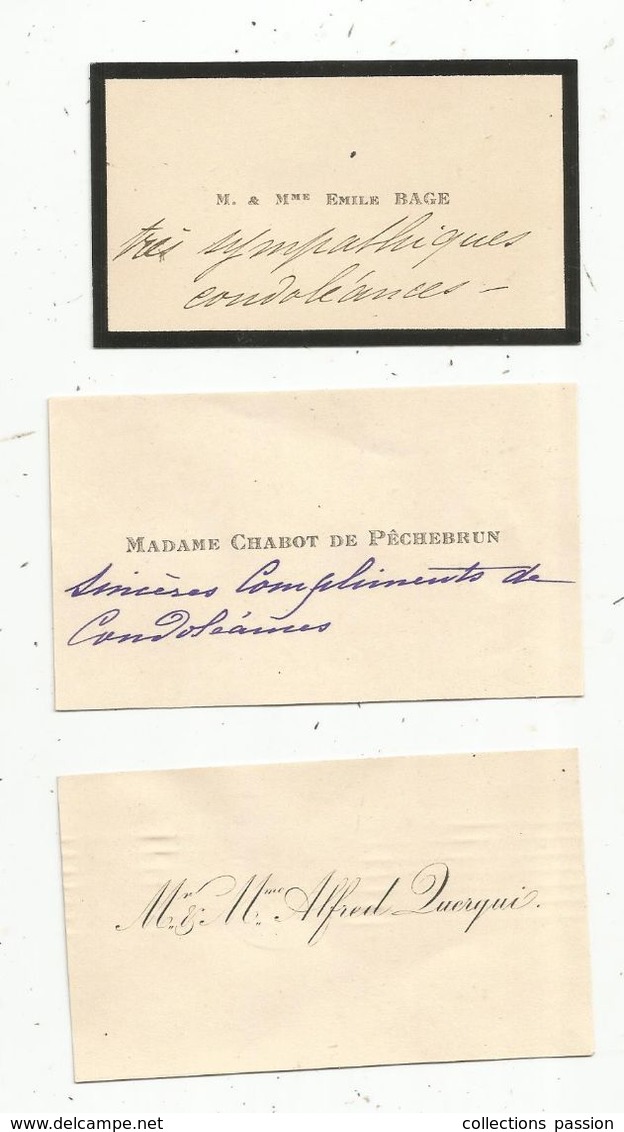 M. & MME EMILE BAGE
très sympathiques
condoléances –
MADAME CHABOT DE PÊCHEBRUN
Sincères Compliments de
Condoléances
Mr. & Mme. Alfred Querqui.
collections passion